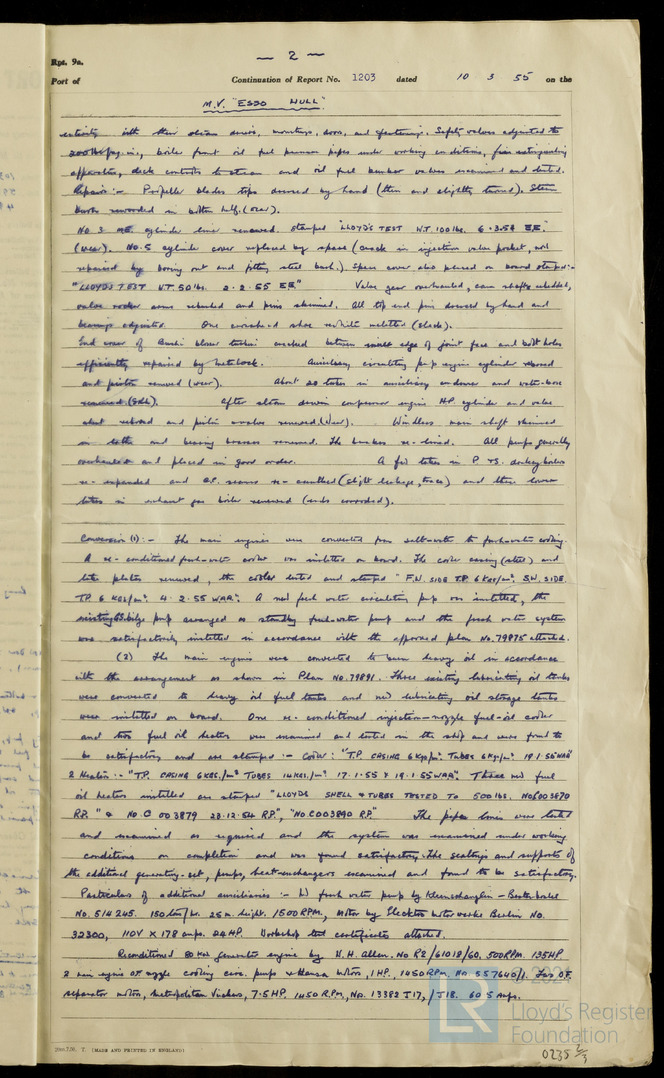 Rpt. 9a.
— 2 —
Port of Continuation of Report No. 1203 dated 10 3 55 on the
M.V. "ESSO HULL".
entirety with their steam drums, mountings, doors, and fastenings. Safety valves adjusted to
200 lbs. boiler front oil fuel pressure pipes under working conditions, fire extinguishing
apparatus, deck controls to steam and oil fuel bunker valves examined and tested.
Repairs :- Propeller blades tips dressed by hand (thin and slightly turned). Stern
bush rewooded in bottom half. (wear).
No 3 ME. cylinder liner renewed. Stamped "LLOYD'S TEST W.T. 100 lbs. 6.3.54 EE."
(wear). No. 5 cylinder cover replaced by spare (crack in injection valve pocket, will
repaired by boring out and fitting steel bush.) Spare cover also placed on board stamped :-
"LLOYDS TEST W.T. 50 lbs. 2.2.55 EE" Valve gear overhauled, cam shafts rebedded,
valve rocker arms rebushed and pins skimmed. All top end pins dressed by hand and
bearings adjusted. One crosshead shoe re-white metalled (slack).
End cover of Buchi blower turbine cracked between inner edge of joint face and bolt holes
efficiently repaired by metalock. Auxiliary circulating pump engine cylinder rebored
and piston renewed (wear). About 20 tubes in auxiliary condenser and
renewed. After steam driven compressor engine H.P. cylinder and valve
chest rebored and piston renewed. (Wear). Windlass main shaft skimmed
and bearing brasses renewed. The brakes re-lined. All pumps generally
overhauled and placed in good order. A few tubes in P. & S. donkey boilers
re-expanded and seams re-caulked (slight leakage, traces) and three lower
tubes in exhaust gas boiler renewed (ends corroded).
Conversion (1) :- The main engines were converted from salt-water to fresh-water cooling.
A re-conditioned fresh-water cooler was installed on board. The cooler casing (steel) and
tube plates renewed, the cooler tested and stamped "F.W. SIDE T.P. 6 KGS/cm². S.W. SIDE.
T.P. 6 KGS/cm². 4.2.55 WAR". A new fresh water circulating pump was installed, the
existing bilge pump arranged as standby fresh-water pump and the fresh water system
was satisfactorily installed in accordance with the approved plan No. 79875 attached.
(2) The main engines were converted to burn heavy oil in accordance
with the arrangement as shown in Plan No. 79891. Three existing lubricating oil tanks
were converted to heavy oil fuel tanks and new lubricating oil storage tanks
were installed on board. One re-conditioned injection-nozzle fuel-oil cooler
and two fuel oil heaters were examined and tested in the shop and were found to
be satisfactory and are stamped :- Cooler: "T.P. CASING 6 Kgs/cm². TUBES 6 Kgs/cm². 19.1.55 WAR"
2 Heaters :- "T.P. CASING 6 KGS./cm² TUBES 14 KGS./cm². 17.1.55 & 19.1.55 WAR". Three new fuel
oil heaters installed are stamped "LLOYDS SHELL & TUBES TESTED TO 500 lbs. No C003870
R.P." & No C 003879 23.12.54 R.P.", "NO C003890 R.P." The pipe lines were tested
and examined as required and the system was examined under working
conditions on completion and was found satisfactory. The seatings and supports of
the additional generating-set, pumps, heat-exchangers examined and found to be satisfactory.
Particulars of additional auxiliaries :- 1) fresh water pump by Klein Schanzlin - Becker
No. 514245. 150 tons/hr. 25 m. height. 1500 RPM, Motor by Elektro Motorwerke Berlin No.
32300, 110V X 178 amps. 24 HP. Workshop test certificates attached.
Reconditioned 80 KW generator engine by W. H. Allen. No R2/61018/60. 500 RPM. 135 HP
2 main engine O.F. nozzle cooling circ. pumps & Hansa motors, 1 HP. 1450 RPM. No. 557640/1. Two O.F.
separator motors, Metropolitan Vickers, 7.5 HP. 1450 RPM, No. 13382 J17, / J18. 60.5 amps.
(MADE AND PRINTED IN ENGLAND)
© 2021
LR
Lloyd's Register
Foundation
0235 2/3